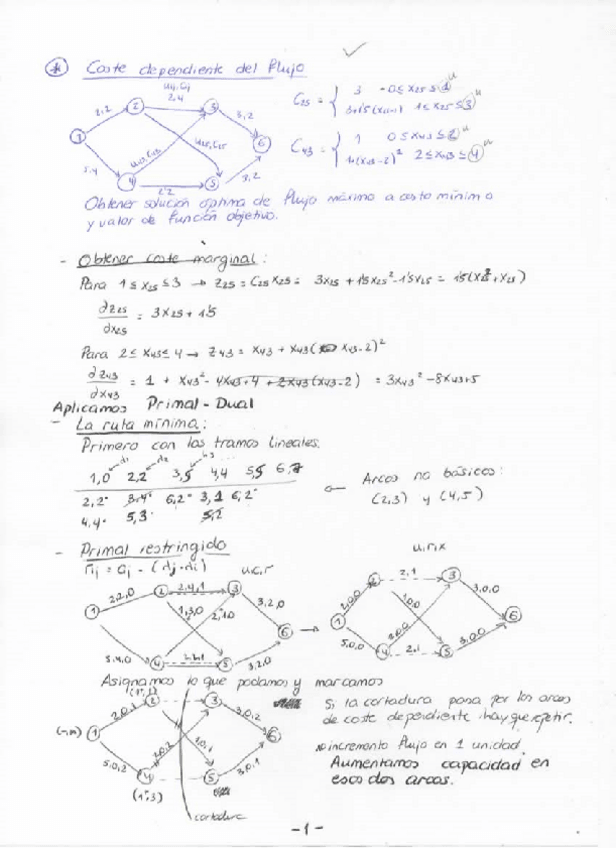 * Coste dependiente del flujo
u4,c4
2,2
2,4
3,2
5,4
u43,c43
u25,c25
2,2
3,2
1 2 3 4 5 6
C25 = { 3 0≤x25≤1
3+1'5(x25-1) 1≤x25≤3
C43 = { 1 0≤x43≤2
1+(x43-2)² 2≤x43≤4
Obtener solución óptima de flujo máximo a costo mínimo
y valor de función objetivo.
- Obtener coste marginal:
Para 1≤x25≤3 → Z25 = C25 X25 = 3x25 + 1'5x25² - 1'5x25 = 1'5(x25²+x25)
∂Z25/∂x25 = 3x25 + 1'5
Para 2≤x43≤4 → Z43 = x43 + x43(x43-2)²
∂Z43/∂x43 = 1 + x43² - 4x43+4 + 2x43(x43-2) = 3x43² - 8x43+5
Aplicamos Primal-Dual
- La ruta mínima:
Primero con los tramos lineales.
1,0 2,2 3,5 4,4 5,5 6,7
2,2 3,4 6,2 3,1 6,2
4,4 5,3 5,2
Arcos no básicos:
(2,3) y (4,5)
- Primal restringido
u,c,r
u,r,x
2,2,0
2,4,1
1,3,0
2,1,0
3,2,0
5,4,0
2,2,1
3,2,0
2,0,0
2,1
1,0,0
2,0,0
3,0,0
5,0,0
2,1
3,0,0
Asignamos lo que podamos y marcamos
2,0,1
3,0,2
2,0,2
1,0,1
5,0,2
3,0,1
cortadura
Si la cortadura pasa por los arcos
de coste dependiente hay que repetir.
incremento flujo en 1 unidad.
Aumentamos capacidad en
esos dos arcos.
-1-